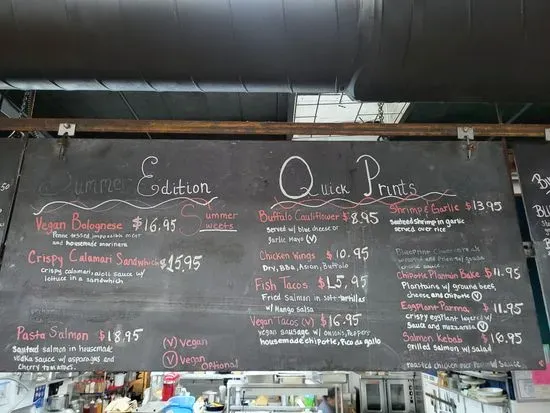 Summer Edition
Vegan Bolognese $16.95
Penne tossed impossible meat
and housemade marinara
Summer
Sweets
Crispy Calamari Sandwich $15.95
crispy calamari, aioli sauce w/
lettuce in a sandwich
Pasta Salmon $18.95
sauteed salmon in housemade
vodka sauce w/ asparagus and
cherry tomatoes.
(V) Vegan
(V) Vegan
Optional
Quick Prints
Buffalo Cauliflower $8.95
served w/ blue cheese or
Garlic Mayo (V)
Chicken Wings $10.95
Dry, BBQ, Asian, Buffalo
Fish Tacos $15.95
Fried Salmon in soft tortillas
w/ Mango Salsa
Vegan Tacos (V) $16.95
vegan sausage w/ onions, Peppers
housemade chipotle, Pico de gallo
Shrimp & Garlic $13.95
sauteed shrimp in garlic
served over rice
Chipotle Plantain Bake $11.95
Plantains w/ ground beef,
cheese and chipotle (V)
Eggplant Parma $11.95
crispy eggplant layered w/
sauce and mozzarella (V)
Salmon Kebab $16.95
grilled salmon w/ salad
roasted chicken over w/ sauce